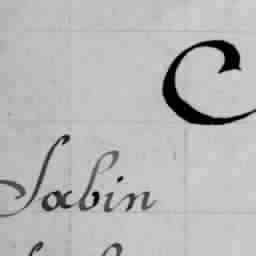 C
Sabin